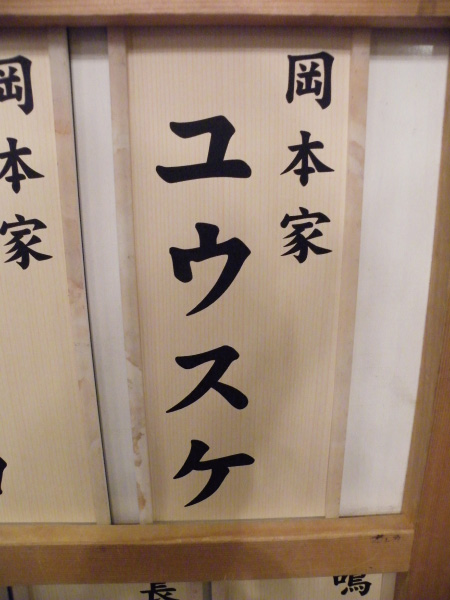 岡本家
ユウスケ
岡本家
長
鳴